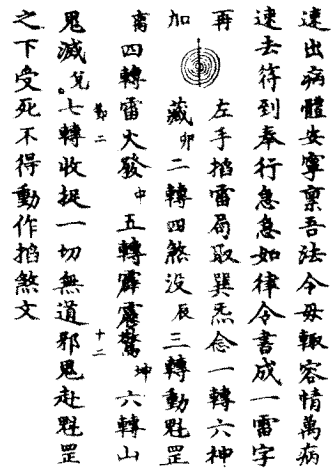 速出病體安寧稟吾法令毋輒容情萬病
速去符到奉行急急如律令書成一雷字
再 左手掐雷局取巽炁念一轉六神
加 藏卯二轉四煞没辰三轉動魁罡
离四轉雷火發中五轉霹靂驚坤六轉山
十二
鬼滅兌七轉收捉一切無道邪鬼赴魁罡
之下受死不得動作掐煞文